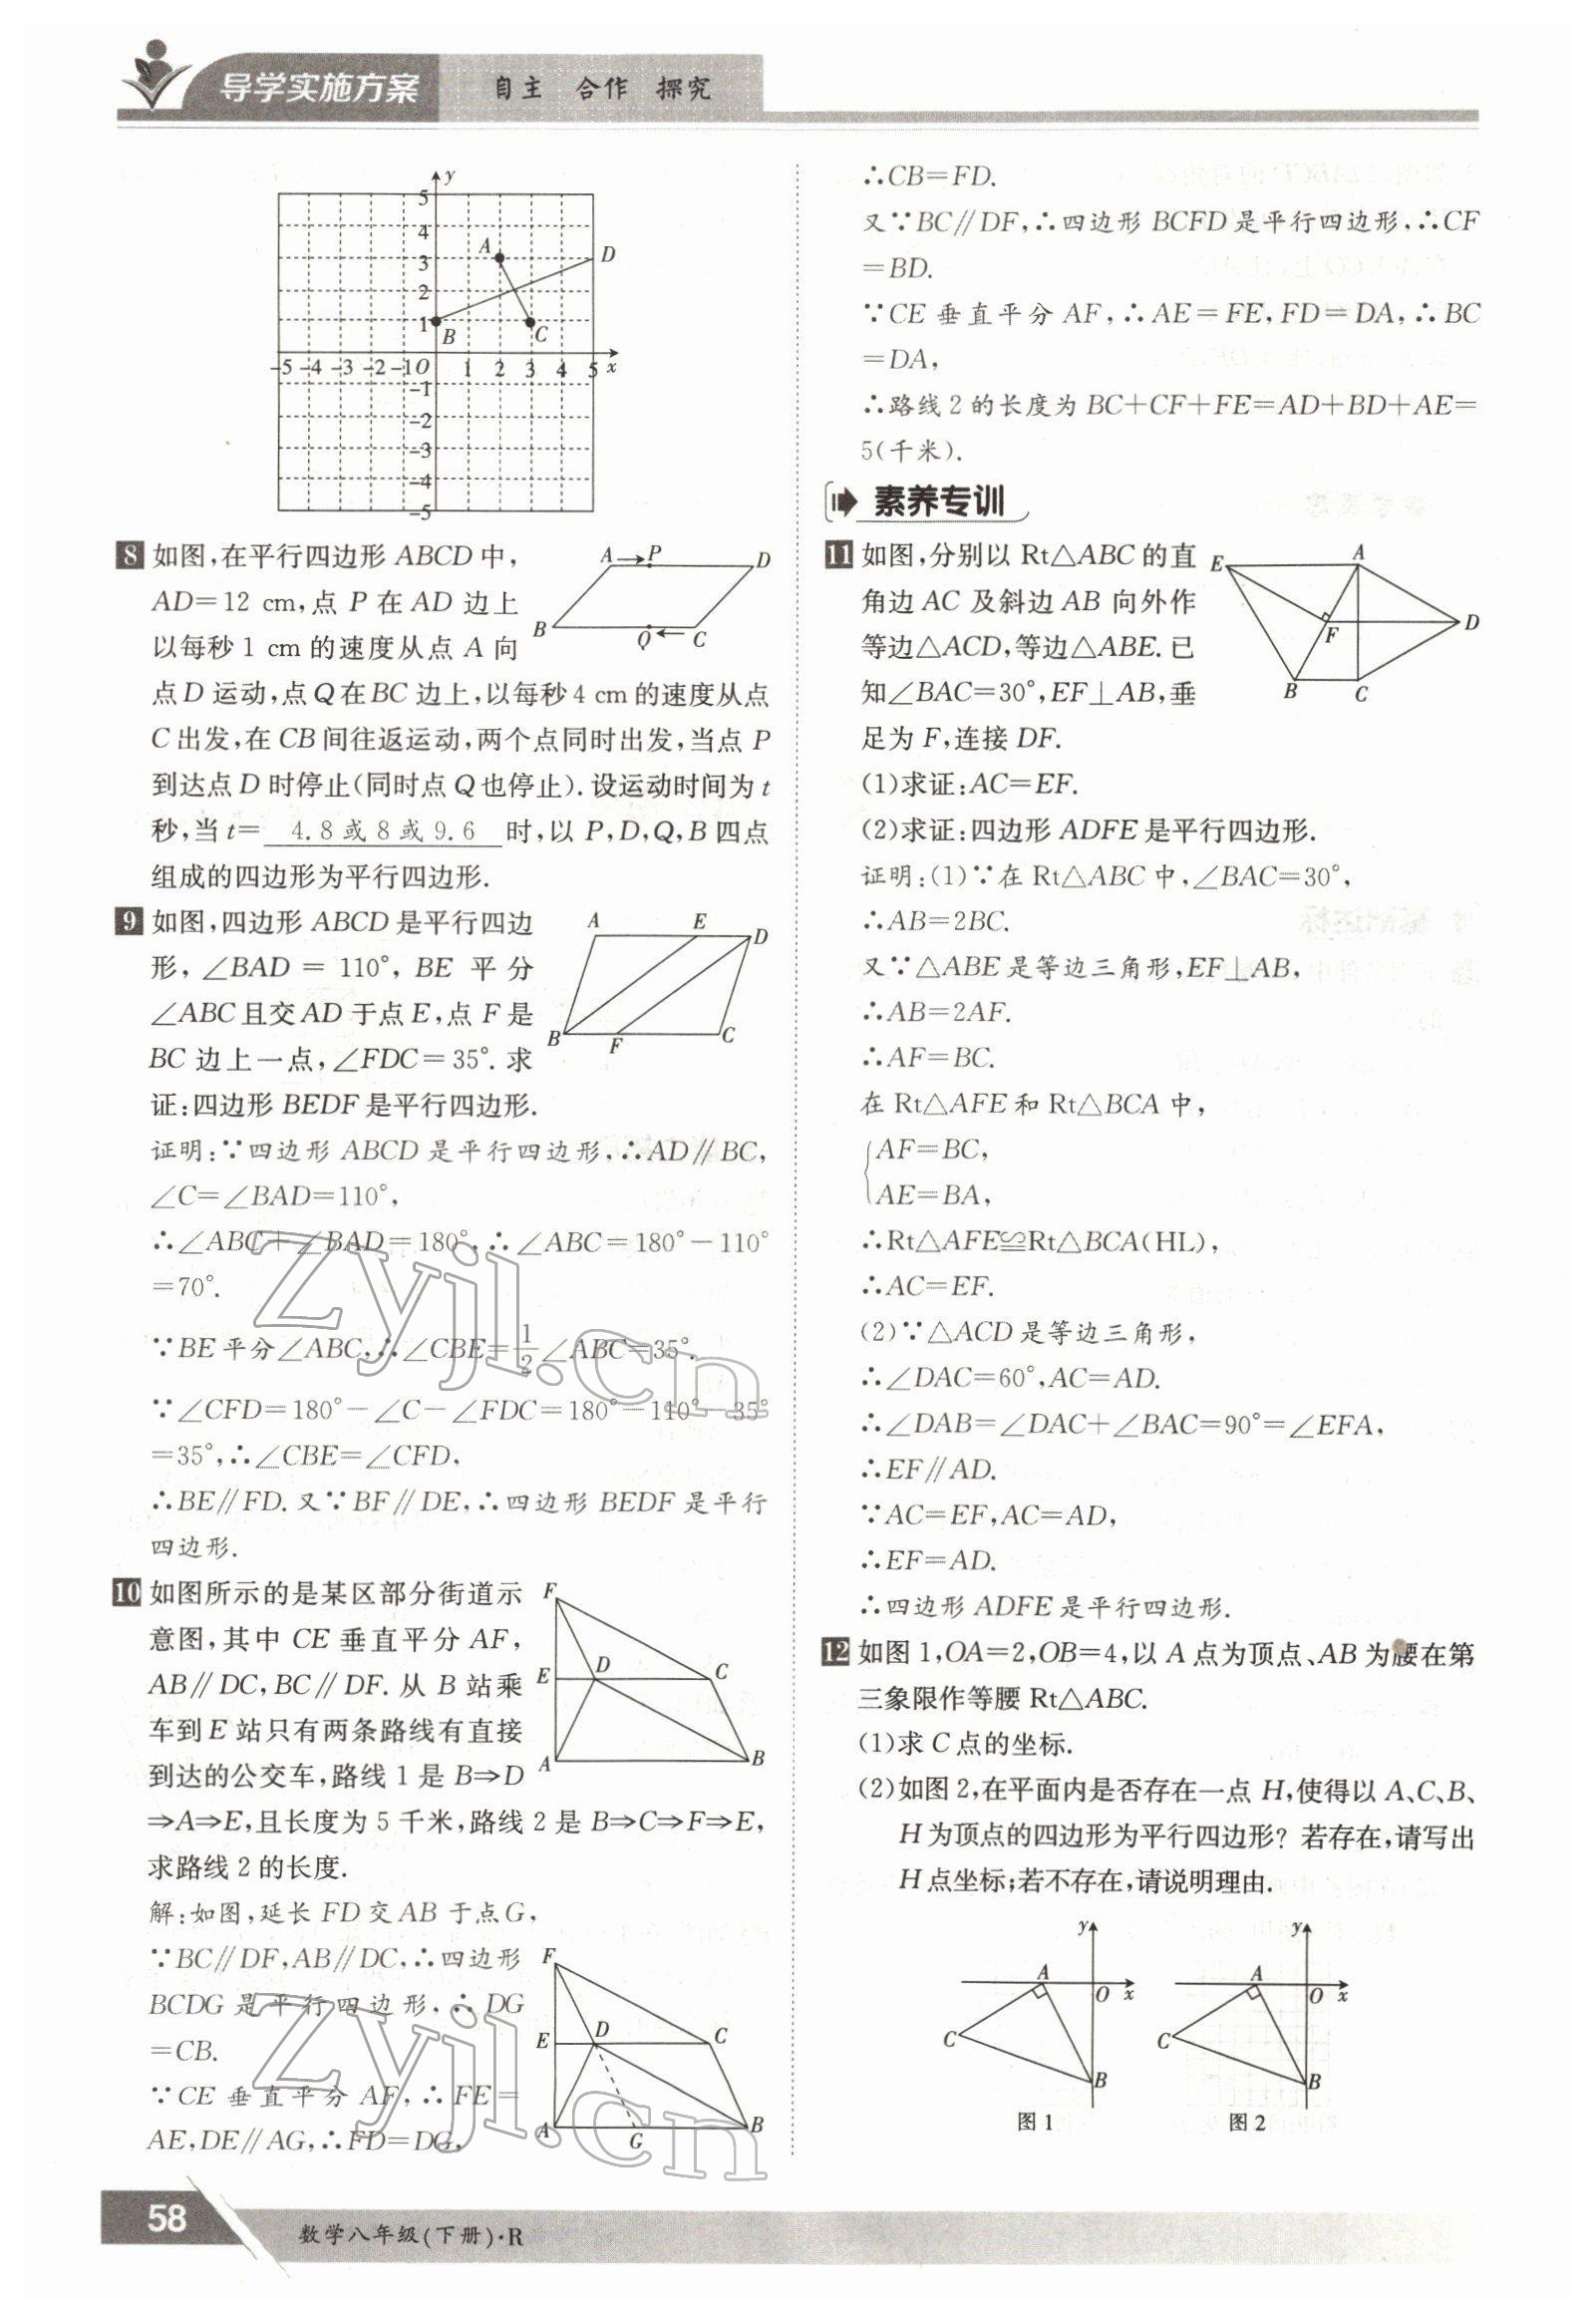 导学实施方案 自主 合作 探究
y
5
4
3
2
1
A
D
B
C
-5 -4 -3 -2 -1 O 1 2 3 4 5 x
-1
-2
-3
-4
-5
8 如图,在平行四边形 ABCD 中,
AD=12 cm,点 P 在 AD 边上
以每秒 1 cm 的速度从点 A 向
点 D 运动,点 Q 在 BC 边上,以每秒 4 cm 的速度从点
C 出发,在 CB 间往返运动,两个点同时出发,当点 P
到达点 D 时停止(同时点 Q 也停止).设运动时间为 t
秒,当 t= 4.8 或 8 或 9.6 时,以 P,D,Q,B 四点
组成的四边形为平行四边形.
A P D
B Q C
9 如图,四边形 ABCD 是平行四边
形,∠BAD = 110°,BE 平分
∠ABC 且交 AD 于点 E,点 F 是
BC 边上一点,∠FDC=35°.求
证:四边形 BEDF 是平行四边形.
A E D
B F C
证明:∵四边形 ABCD 是平行四边形,∴AD∥BC,
∠C=∠BAD=110°,
∴∠ABC+∠BAD=180°,∴∠ABC=180°-110°
=70°.
∵BE 平分∠ABC,∴∠CBE=1/2∠ABC=35°.
∵∠CFD=180°-∠C-∠FDC=180°-110°-35°
=35°,∴∠CBE=∠CFD,
∴BE∥FD.又∵BF∥DE,∴四边形 BEDF 是平行
四边形.
10 如图所示的是某区部分街道示
意图,其中 CE 垂直平分 AF,
AB∥DC,BC∥DF.从 B 站乘
车到 E 站只有两条路线有直接
到达的公交车,路线 1 是 B⇒D
⇒A⇒E,且长度为 5 千米,路线 2 是 B⇒C⇒F⇒E,
求路线 2 的长度.
F
E D C
A B
解:如图,延长 FD 交 AB 于点 G,
∵BC∥DF,AB∥DC,∴四边形
BCDG 是平行四边形,∴DG
=CB.
∵CE 垂直平分 AF,∴FE=
AE,DE∥AG,∴FD=DG,
F
E D C
A G B
∴CB=FD.
又∵BC∥DF,∴四边形 BCFD 是平行四边形,∴CF
=BD.
∵CE 垂直平分 AF,∴AE=FE,FD=DA,∴BC
=DA,
∴路线 2 的长度为 BC+CF+FE=AD+BD+AE=
5(千米).
素养专训
11 如图,分别以 Rt△ABC 的直
角边 AC 及斜边 AB 向外作
等边△ACD,等边△ABE.已
知∠BAC=30°,EF⊥AB,垂
足为 F,连接 DF.
(1)求证:AC=EF.
(2)求证:四边形 ADFE 是平行四边形.
E A
F D
B C
证明:(1)∵在 Rt△ABC 中,∠BAC=30°,
∴AB=2BC.
又∵△ABE 是等边三角形,EF⊥AB,
∴AB=2AF.
∴AF=BC.
在 Rt△AFE 和 Rt△BCA 中,
AF=BC,
AE=BA,
∴Rt△AFE≌Rt△BCA(HL),
∴AC=EF.
(2)∵△ACD 是等边三角形,
∴∠DAC=60°,AC=AD.
∴∠DAB=∠DAC+∠BAC=90°=∠EFA,
∴EF∥AD.
∵AC=EF,AC=AD,
∴EF=AD.
∴四边形 ADFE 是平行四边形.
12 如图 1,OA=2,OB=4,以 A 点为顶点、AB 为腰在第
三象限作等腰 Rt△ABC.
(1)求 C 点的坐标.
(2)如图 2,在平面内是否存在一点 H,使得以 A、C、B、
H 为顶点的四边形为平行四边形?若存在,请写出
H 点坐标;若不存在,请说明理由.
y
A
O x
C
B
图 1
y
A
O x
C
B
图 2
zyjl.cn
zyjl.cn
58
数学八年级(下册)·R